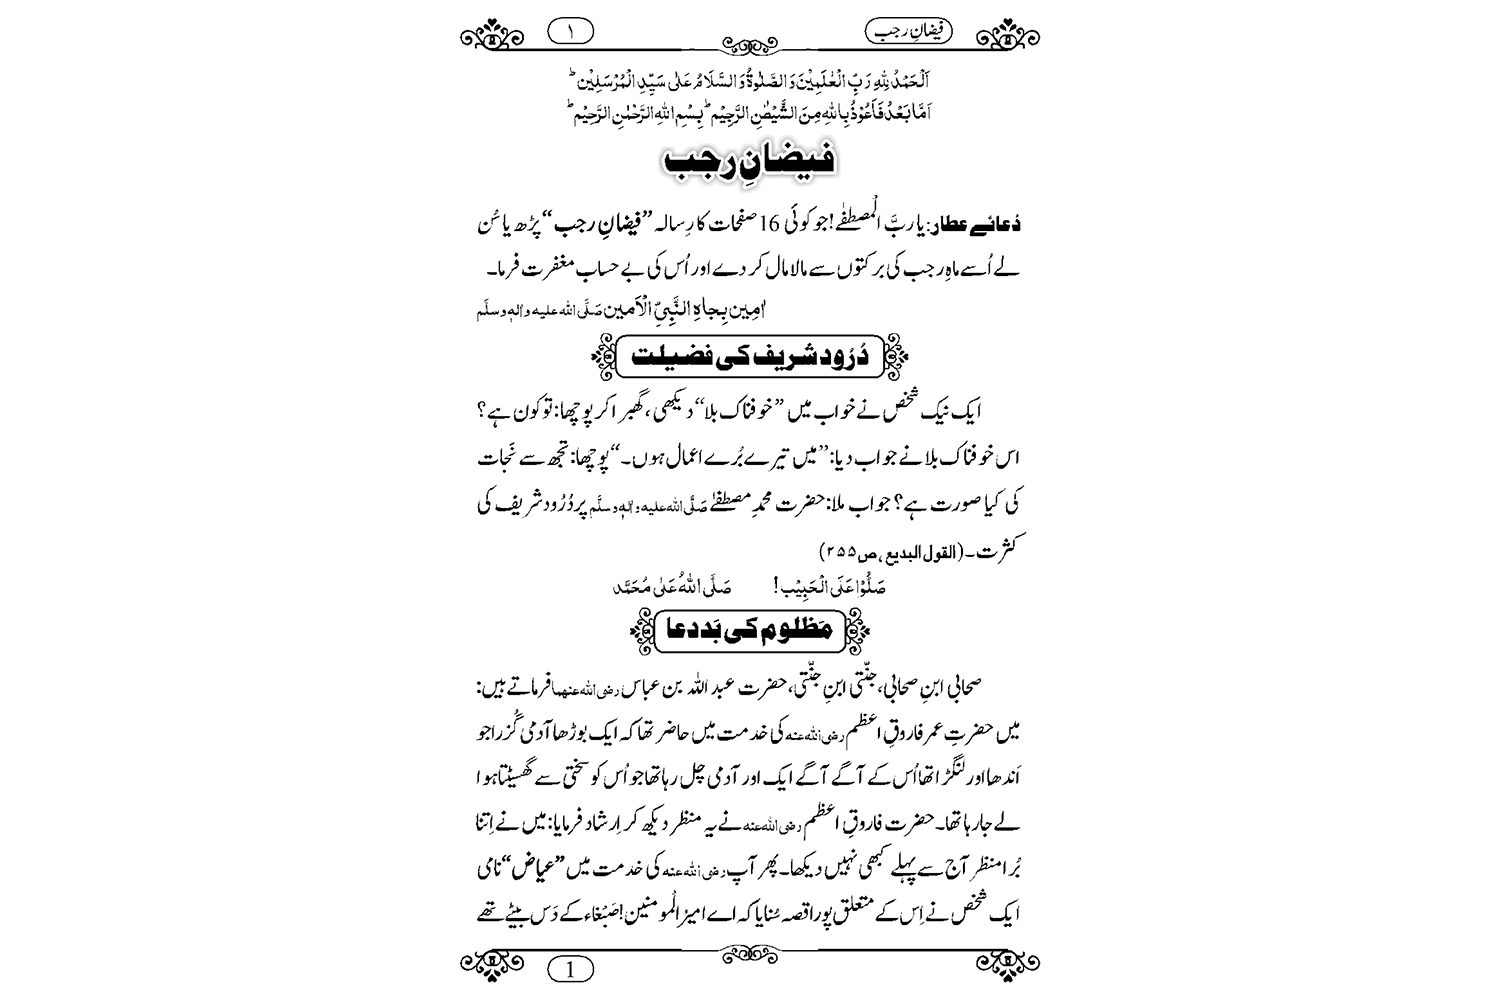 فیضانِ رجب
۱
اَلْحَمْدُ لِلّٰهِ رَبِّ الْعٰلَمِیْنَ وَالصَّلٰوةُ وَالسَّلَامُ عَلٰی سَیِّدِ الْمُرْسَلِیْنَ ؕ
اَمَّا بَعْدُ فَاَعُوْذُ بِاللّٰهِ مِنَ الشَّیْطٰنِ الرَّجِیْمِ ؕ بِسْمِ اللّٰهِ الرَّحْمٰنِ الرَّحِیْمِ ؕ
فیضانِ رجب
دُعائے عطار: یا ربَّ المصطفٰے! جو کوئی 16 صفحات کا رِسالہ ”فیضانِ رجب“ پڑھ یا سُن
لے اُسے ماہِ رجب کی برکتوں سے مالا مال کر دے اور اُس کی بے حساب مغفرت فرما۔
اٰمِین بِجاہِ النَّبِیِّ الْاَمین صَلَّی اللہ علیہ واٰلہٖ وسلَّم
دُرُود شریف کی فضیلت
ایک نیک شخص نے خواب میں ”خوفناک بلا“ دیکھی، گھبرا کر پوچھا: تو کون ہے؟
اس خوفناک بلا نے جواب دیا: ”میں تیرے بُرے اعمال ہوں۔“ پوچھا: تجھ سے نَجات
کی کیا صورت ہے؟ جواب ملا: حضرت محمدِ مصطفےٰ صَلَّی اللہ علیہ واٰلہٖ وسلَّم پر دُرُود شریف کی
کثرت۔ (القول البدیع، ص ۲۵۵)
صَلُّوْا عَلَی الْحَبِیْب! صَلَّی اللّٰهُ عَلٰی مُحَمَّد
مَظلوم کی بَددعا
صحابی ابنِ صحابی، جنّتی ابنِ جنّتی، حضرت عبد اللہ بن عباس رضی اللہ عنہما فرماتے ہیں:
میں حضرتِ عمر فاروقِ اعظم رضی اللہ عنہ کی خدمت میں حاضر تھا کہ ایک بوڑھا آدمی گُزرا جو
اَندھا اور لنگڑا تھا اُس کے آگے آگے ایک اور آدمی چل رہا تھا جو اُس کو سختی سے گھسیٹتا ہوا
لے جا رہا تھا۔ حضرت فاروقِ اعظم رضی اللہ عنہ نے یہ منظر دیکھ کر اِرشاد فرمایا: میں نے اِتنا
بُرا منظر آج سے پہلے کبھی نہیں دیکھا۔ پھر آپ رضی اللہ عنہ کی خدمت میں ”عیاض“ نامی
ایک شخص نے اِس کے متعلق پورا قصہ سُنایا کہ اے امیرُ المومنین! صَبْغاء کے دَس بیٹے تھے
1